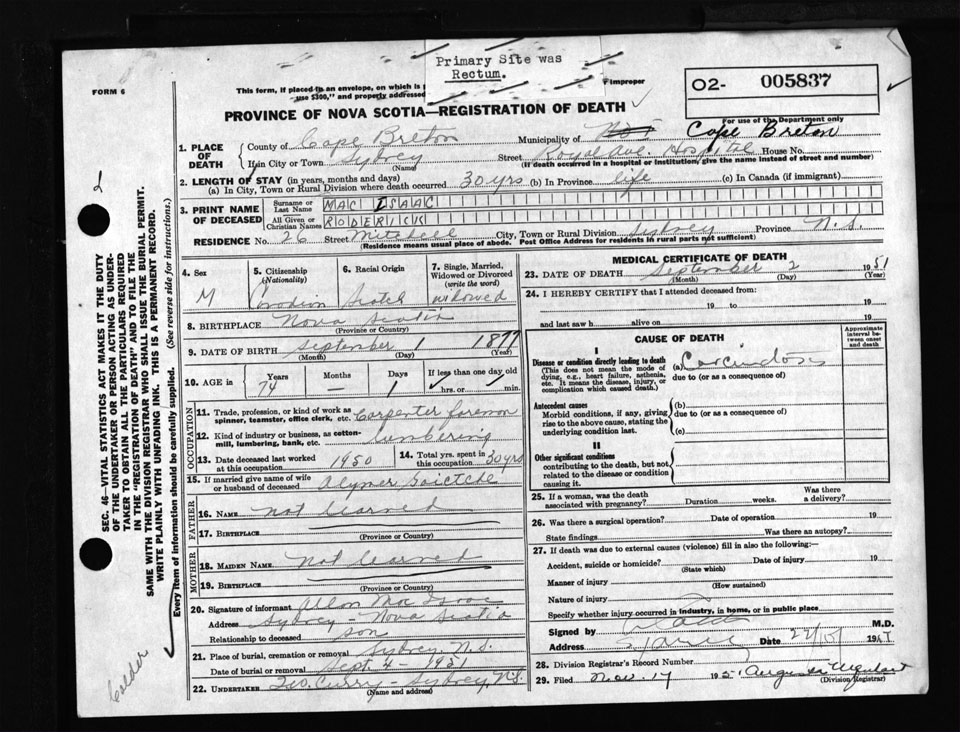 Primary Site was
Rectum.
FORM 6
This form, if placed in an envelope, on which is
use $300," and properly addressed
improper
02- 005837
PROVINCE OF NOVA SCOTIA—REGISTRATION OF DEATH
For use of the Department only
1. PLACE OF DEATH
County of Cape Breton Municipality of Cape Breton
If in City or Town Sydney Street Royal Ave. Hospital House No.
(Name) (If death occurred in a hospital or institution, give the name instead of street and number)
2. LENGTH OF STAY (in years, months and days)
(a) In City, Town or Rural Division where death occurred 30 yrs (b) In Province life (c) In Canada (if immigrant)
3. PRINT NAME OF DECEASED
Surname or Last Name MAC ISAAC
All Given or Christian Names RODERICK
RESIDENCE No. 26 Street Mitchell City, Town or Rural Division Sydney Province N.S.
(Residence means usual place of abode. Post Office Address for residents in rural parts not sufficient)
4. Sex
M
5. Citizenship (Nationality)
Canadian
6. Racial Origin
Scotch
7. Single, Married, Widowed or Divorced (write the word)
widowed
8. BIRTHPLACE Nova Scotia
(Province or Country)
9. DATE OF BIRTH September 1 1877
(Month) (Day) (Year)
10. AGE in
Years Months Days If less than one day old
74 — 1 hrs. or min.
OCCUPATION
11. Trade, profession, or kind of work as spinner, teamster, office clerk, etc. Carpenter foreman
12. Kind of industry or business, as cotton-mill, lumbering, bank, etc. lumbering
13. Date deceased last worked at this occupation 1950
14. Total yrs. spent in this occupation 30 yrs
15. If married give name of wife or husband of deceased
FATHER
16. NAME not learned
17. BIRTHPLACE
(Province or Country)
MOTHER
18. MAIDEN NAME Not learned
19. BIRTHPLACE
(Province or Country)
20. Signature of informant Allan Mac Isaac
Address Sydney - Nova Scotia
Relationship to deceased son
21. Place of burial, cremation or removal Sydney, N.S.
Date of burial or removal Sept. 4 - 1951
22. UNDERTAKER Geo. Curry - Sydney, N.S.
(Name and address)
MEDICAL CERTIFICATE OF DEATH
23. DATE OF DEATH September 2 1951
(Month) (Day) (Year)
24. I HEREBY CERTIFY that I attended deceased from:
19 to 19
and last saw h alive on 19
CAUSE OF DEATH
Approximate interval between onset and death
I
Disease or condition directly leading to death
(This does not mean the mode of dying, e.g., heart failure, asthenia, etc. It means the disease, injury, or complication which caused death.)
(a) Carcinosis
due to (or as a consequence of)
Antecedent causes
Morbid conditions, if any, giving rise to the above cause, stating the underlying condition last.
(b)
due to (or as a consequence of)
(c)
II
Other significant conditions
contributing to the death, but not related to the disease or condition causing it.
25. If a woman, was the death associated with pregnancy? Duration weeks. Was there a delivery?
26. Was there a surgical operation? Date of operation 19
State findings Was there an autopsy?
27. If death was due to external causes (violence) fill in also the following:—
Accident, suicide or homicide? Date of injury 19
(State which)
Manner of injury
(How sustained)
Nature of injury
Specify whether injury occurred in industry, in home, or in public place
Signed by M.D.
Address Date 19
28. Division Registrar's Record Number
29. Filed Nov. 17 195
(Division Registrar)
SEC. 46—VITAL STATISTICS ACT MAKES IT THE DUTY
OF THE UNDERTAKER OR PERSON ACTING AS UNDER-
TAKER TO OBTAIN ALL THE PARTICULARS REQUIRED
IN THE "REGISTRATION OF DEATH" AND TO FILE THE
SAME WITH THE DIVISION REGISTRAR WHO SHALL ISSUE THE BURIAL PERMIT.
WRITE PLAINLY WITH UNFADING INK. THIS IS A PERMANENT RECORD.
Every item of information should be carefully supplied. (See reverse side for instructions.)